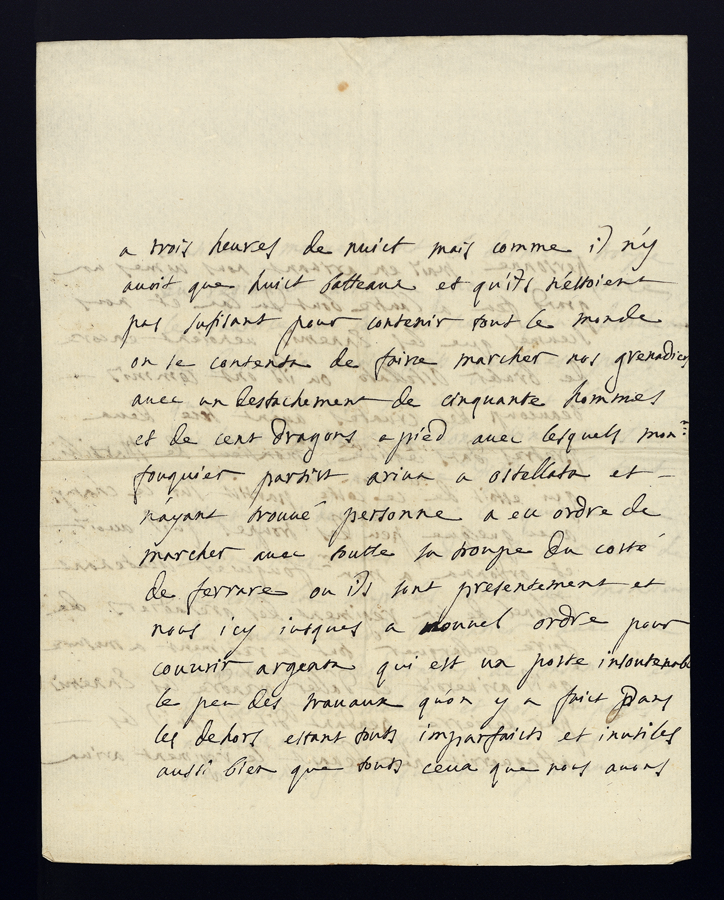 a trois heures de nuict mais comme il n'y
avoit que huict batteaux et qu'ils n'estoient
pas sufisant pour contenir tout le monde
on se contenta de faire marcher nos grenadiers
avec un destachement de cinquante hommes
et de cent dragons a pied avec lesquels monr
fouquier partit ariva a ostellata et
n'ayant trouvé personne a eu ordre de
marcher avec toutte sa troupe du costé
de ferrare ou ils sont presentement et
nous icy jusques a nouvel ordre pour
couvrir argenta qui est un poste insoutenable
le peu des travaux qu'on y a faict dans
les dehors estant touts imparfaicts et inutiles
aussi bien que touts ceux que nous avons